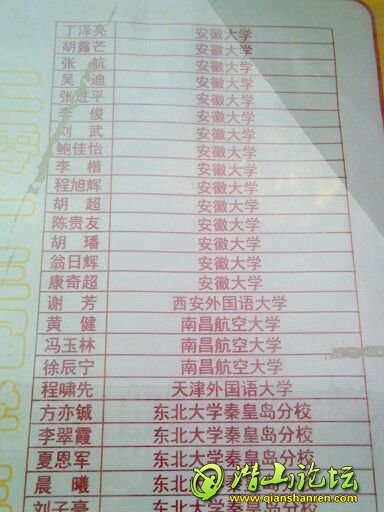 丁泽亮 安徽大学
胡露芒 安徽大学
张 航 安徽大学
吴 迪 安徽大学
张进平 安徽大学
李 俊 安徽大学
刘 武 安徽大学
鲍佳怡 安徽大学
李 楷 安徽大学
程旭辉 安徽大学
胡 超 安徽大学
陈贵友 安徽大学
胡 璠 安徽大学
翁日辉 安徽大学
康奇超 安徽大学
谢 芳 西安外国语大学
黄 健 南昌航空大学
冯玉林 南昌航空大学
徐辰宁 南昌航空大学
程啸先 天津外国语大学
方亦铖 东北大学秦皇岛分校
李翠霞 东北大学秦皇岛分校
夏恩军 东北大学秦皇岛分校
晨 曦 东北大学秦皇岛分校
刘子豪 东北大学秦皇岛分校
潜山论坛
www.qianshanren.com